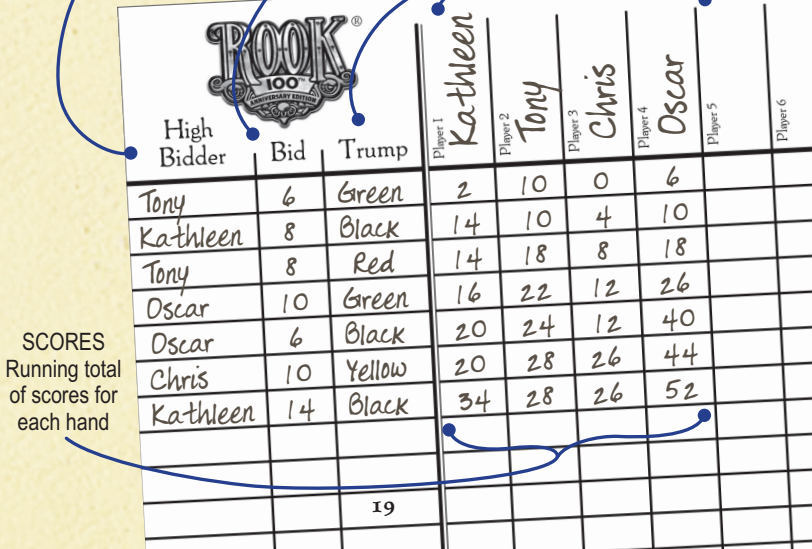 ROOK®
100TH
ANNIVERSARY EDITION
High Bidder Bid Trump Player 1 Kathleen Player 2 Tony Player 3 Chris Player 4 Oscar Player 5 Player 6
Tony 6 Green 2 10 0 6
Kathleen 8 Black 14 10 4 10
Tony 8 Red 14 18 8 18
Oscar 10 Green 16 22 12 26
Oscar 6 Black 20 24 12 40
Chris 10 Yellow 20 28 26 44
Kathleen 14 Black 34 28 26 52
SCORES
Running total
of scores for
each hand
19